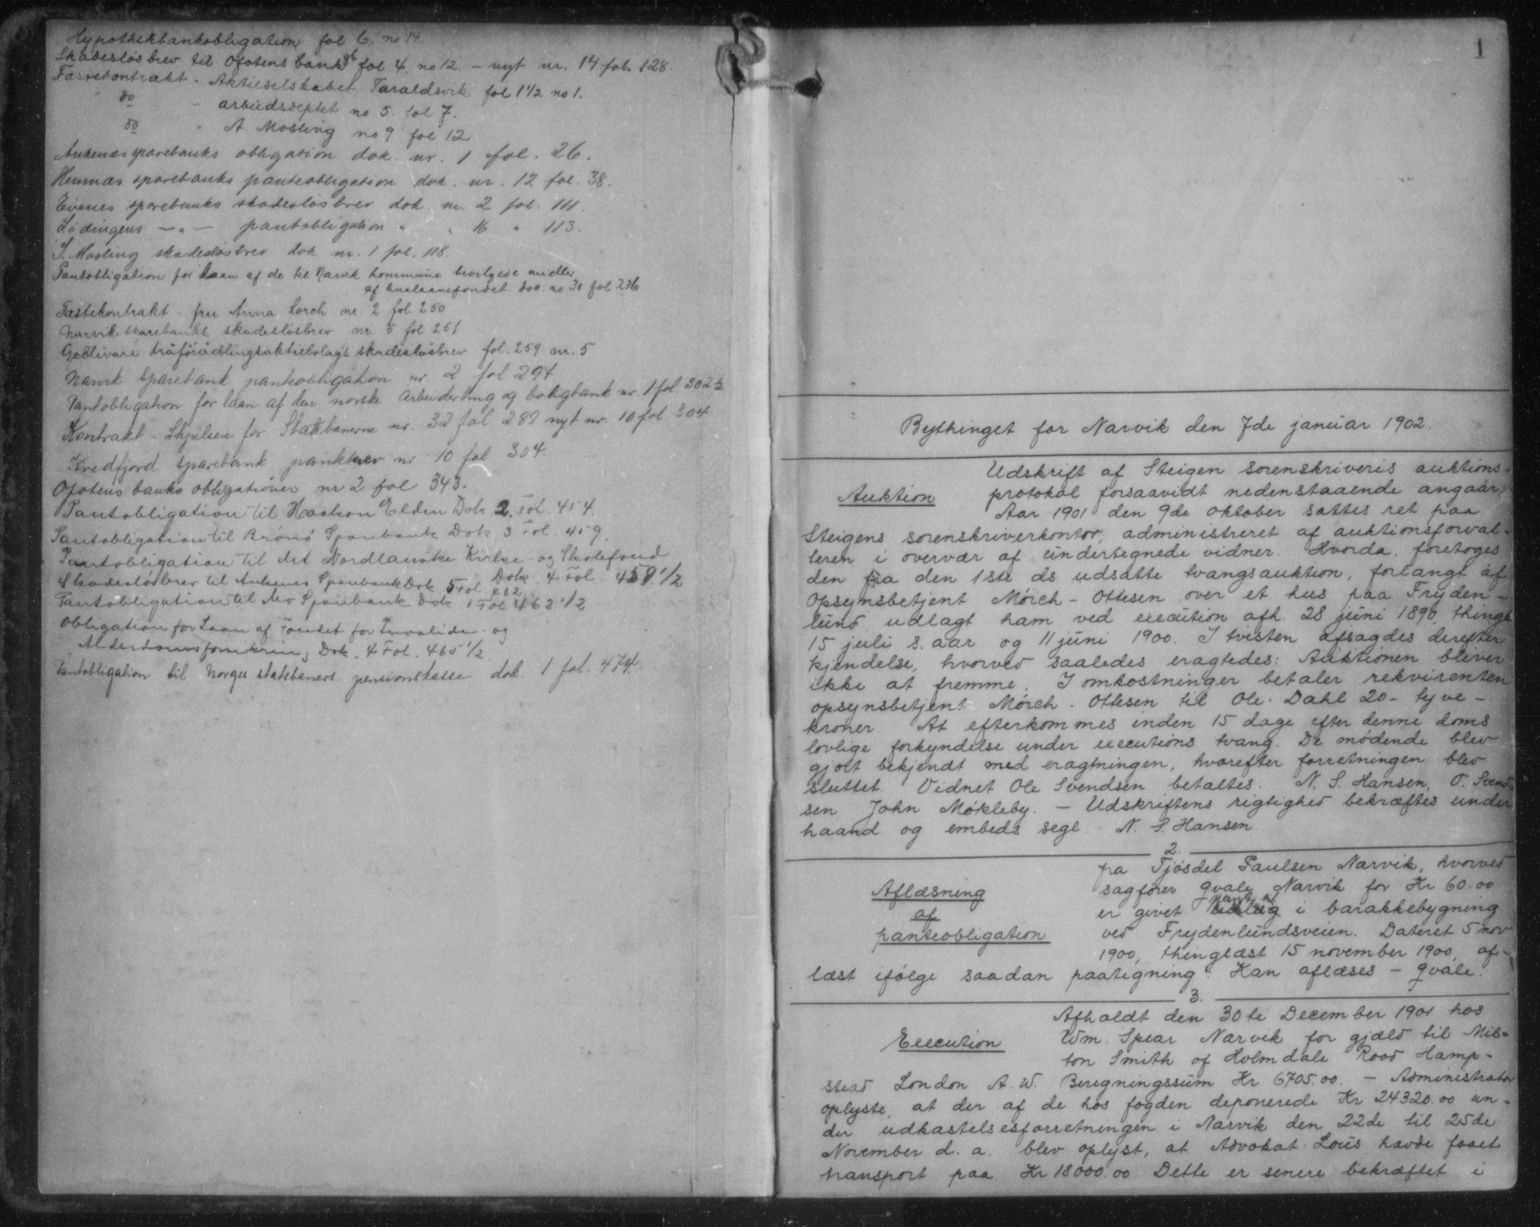 Hypothekbankobligation fol 6. no 14.
Skadesløsbrev til Ofotens bank fol 4. no 12. – nyt nr. 14 fol. 128.
Aktieselskabet Taraldsvik fol 1 1/2 no 1.
do " arbeidsceptet no 5. fol 7.
do " A Mosling no 9 fol 12
Ankenes sparebanks obligation dok. nr. 1 fol. 26.
Hemnæs sparebanks panteobligation dok. nr. 12 fol. 38.
Evenes sparebanks skadesløsbrev dok nr. 2 fol. 111.
Lødingens – " – pantobligation " " 16 " 113.
S. Mosling skadesløsbrev dok nr. 1 fol. 118.
Pantobligation for laan af de til Narvik kommune bevilgede midler
af huslaanefondet dok. no 30 fol 236
Festekontrakt - fru Anna Lorch nr 2 fol 250
Narvik sparebanks skadesløsbrev nr 5 fol 251
Gellivare träförädlingsaktiebolags skadesløsbrev fol. 259 nr. 5
Narvik Sparebank panteobligation nr. 2 fol 297
Pantobligation for laan af den norske Arbeiderbrug og boligbank nr. 1 fol. 302 1/2
Kontrakt - Skjølsen for Statsbanerne nr. 32 fol 289 nyt nr. 10 fol 304
Kvedfjord sparebank pantebrev nr. 10 fol 304
Ofotens banks obligationer nr 2 fol 343.
Pantobligation til Haakon Elden Dok 2. Fol. 454.
Pantobligation til Brønø Sparebank Dok 3 Fol. 459.
Pantobligation til det Nordlanske Kirke- og Skolefond
Dok. 4 Fol. 459 1/2
Skadesløsbrev til Ankenes Sparebank Dok 5 Fol 462
Pantobligation til Mo Sparebank Dok 1 Fol 462 1/2
Obligation for Laan af Fondet for Invalide- og
Alderdomsforsikring, Dok. 4 Fol. 465 1/2
Pantobligation til Norges statsbaners pensionskasse dok. 1 fol. 474.
1
Bythinget for Narvik den 7de januar 1902.
Udskrift af Steigen sorenskriveris auktions-
Auktion protokol forsaavidt nedenstaaende angaar,
Aar 1901 den 9de oktober sattes ret paa
Steigens sorenskriverkontor, administreret af auktionsforval-
teren i overvær af undertegnede vidner. Hvorda foretoges
den fra den 1ste ds udsatte tvangsauktion, forlangt af
opsynsbetjent Mørch-Ottesen over et hus paa Fryden-
lund udlagt ham ved execution afh. 28 juni 1890, thingl.
15 juli s. aar og 11 juni 1900. I tvisten afsagdes derefter
kjendelse, hvorved saaledes eragtedes: Auktionen bliver
ikke at fremme. I omkostninger betaler rekvirenten
opsynsbetjent Mørch-Ottesen til Ole Dahl 20 - tyve -
kroner. At efterkommes inden 15 dage efter denne doms
lovlige forkyndelse under executions tvang. De mødende blev
gjort bekjendt med eragtningen, hvorefter forretningen blev
sluttet. Vidnet Ole Svendsen betaltes. N. S. Hansen, O. Svend-
sen John Møkleby. – Udskriftens rigtighed bekræftes under
haand og embeds segl. N. S. Hansen.
2.
paa Tjøsdel Paulsen Narvik, hvorved
Aflæsning sagfører Qvale Narvik for Kr 60.00
af er givet i barakkebygning
panteobligation ved Frydenlundsveien. Dateret 5 nov
1900, thinglæst 15 november 1900, af-
læst ifølge saadan paategning: Kan aflæses – Qvale.
3.
Afholdt den 30te December 1901 hos
Execution Wm. Spear Narvik for gjæld til Mil-
ton Smith of Holmdale Road Hamp-
stead London A. W. Beregningssum Kr 6705.00. – Administrator
oplyste, at der af de hos fogden deponerede Kr 24320.00 un-
der udkastelsesforretningen i Narvik den 22de til 25de
November d. a. blev oplyst, at Advokat Lous havde faaet
transport paa Kr 18000.00. Dette er senere bekræftet i